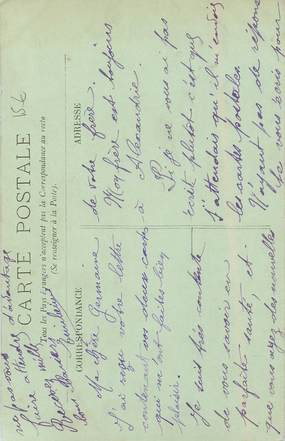 CARTE POSTALE
Tous les Pays Étrangers n'acceptent pas la Correspondance au recto
(Se renseigner à la Poste).
CORRESPONDANCE
ADRESSE
Ma chère Germaine
J'ai reçu votre lettre
contenant vos deux cartes
qui me font faites bien
plaisir.
Je suis très contente
de vous savoir en
parfaite santé, et
que vous ayez des nouvelles
de votre frère.
Mon frère est toujours
à Alexandrie.
Si je ne vous ai pas
écrit plutôt c'est que
j'attendais qu'il m'envoie
les cartes postales
N'ayant pas de réponse
Je vous écris pour
ne pas vous
faire attendre d'avantage
Recevez mille